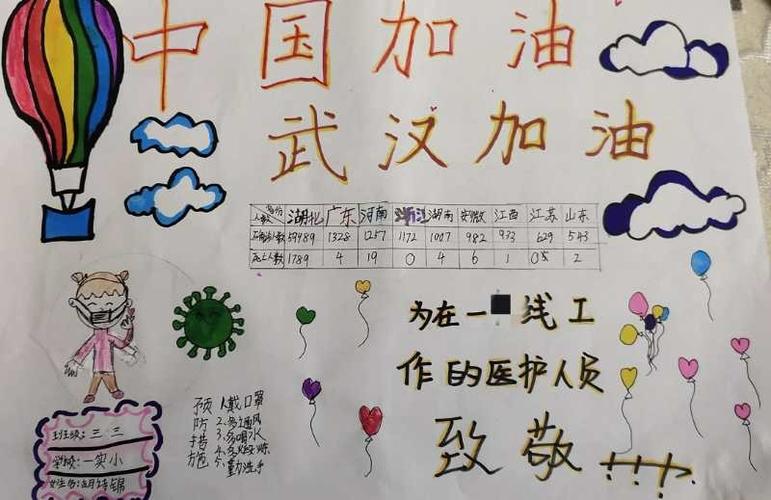 中国加油
武汉加油
省份
人数 湖北 广东 河南 浙江 湖南 安徽 江西 江苏 山东
确诊人数 59989 1328 1257 1172 1007 982 933 629 543
死亡人数 1789 4 19 0 4 6 1 0 2
为在一线工
作的医护人员
致敬!!!
预防措施
1.戴口罩
2.多通风
3.多喝水
4.多锻炼
5.勤洗手
班级:三.三
学校:一实小